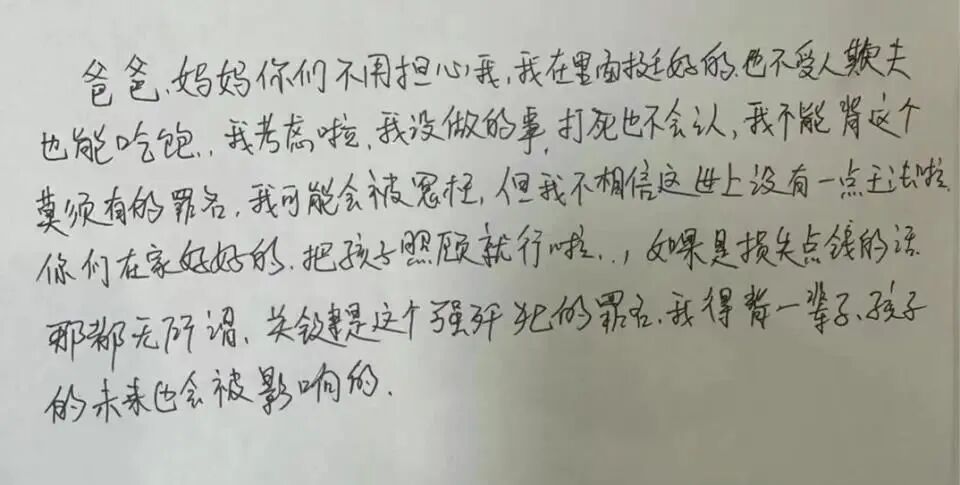 爸爸、妈妈你们不用担心我,我在里面挺好的.也不受人欺夫
也能吃饱.,我考虑啦,我没做的事,打死也不会认,我不能背这个
莫须有的罪名,我可能会被冤枉,但我不相信这世上没有一点王法啦.
你们在家好好的.把孩子照顾就行啦..,如果是损失点钱的话.
那都无所谓,关键是这个强奸犯的罪名.我得背一辈子、孩子
的未来也会被影响的.